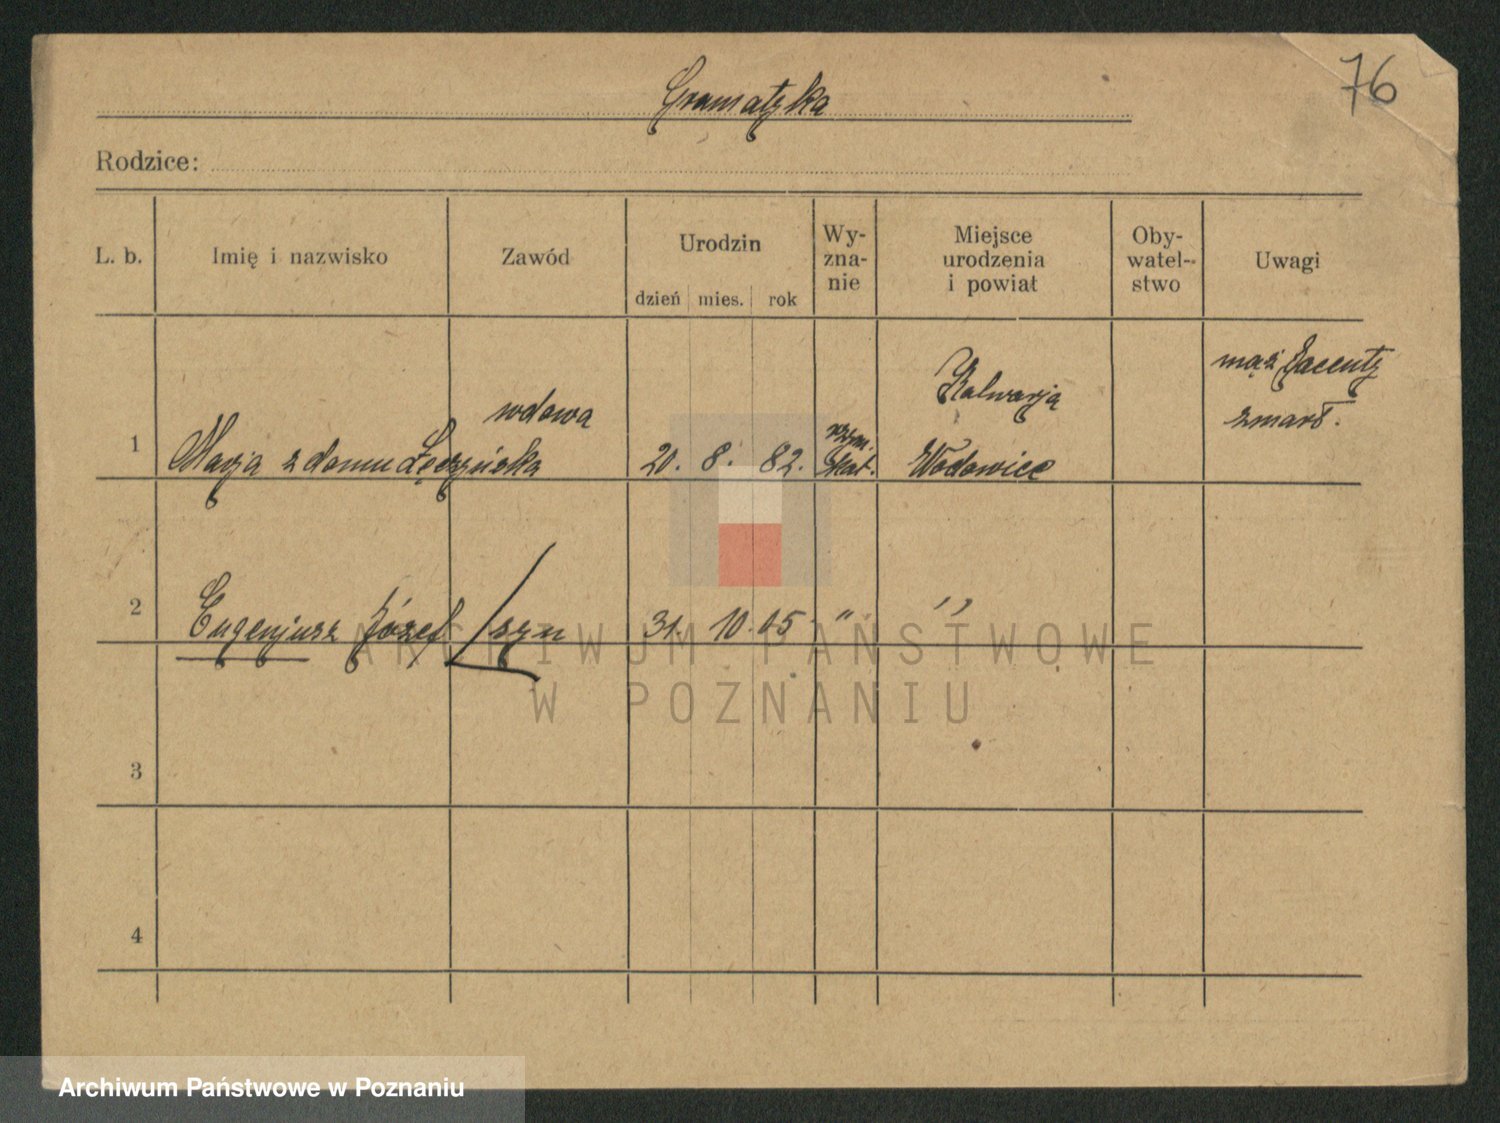 76
Gramatyka
Rodzice:
L. b. Imię i nazwisko Zawód Urodzin dzień mies. rok Wy-zna-nie Miejsce urodzenia i powiat Oby-watel-stwo Uwagi
wdowa Kalwarja mąż Jacenty
zmarł.
1 Marja z domu Łęczyńska 20. 8. 82. rzym. kat. Wadowice
2 Eugenjusz Józef syn 31. 10. 05 " ,,
3
4
ARCHIWUM PAŃSTWOWE
W POZNANIU
Archiwum Państwowe w Poznaniu